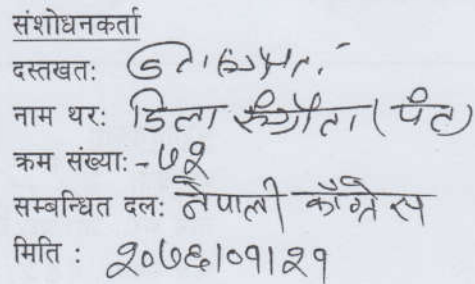 संशोधनकर्ता
दस्तखत:
नाम थर: डिला संग्रौला (पंत)
क्रम संख्या: - ७२
सम्बन्धित दल: नेपाली काँग्रेस
मिति : २०७६।०१।२१